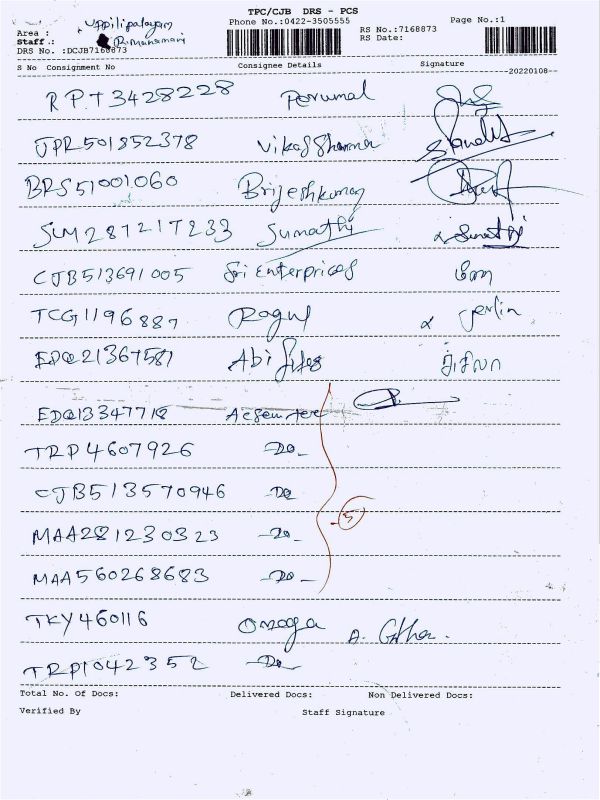 TPC/CJB DRS - PCS
Area : Uppilipalayam Phone No.:0422-3505555 Page No.:1
Staff.: Ramanamani RS No.:7168873
DRS No. :DCJB7168873 RS Date:
S No Consignment No Consignee Details Signature
--20220108--
RPT3428228 Perumal
JPR501852378 Vikas Sharma
BRS51001060 Brijeshkumar
SUM287217233 Sumathi Sumathi
CJB513691005 Sri Enterprices
TCG1196887 Ragul Jerlin
EDQ21367581 Abi
EDQ13347718
TRP4607926 -Do-
CJB513570946 -Do
5
MAA281230323 -Do-
MAA560268683 -Do-
TKY460116 Omega A.
TRP1042352 -Do-
Total No. Of Docs: Delivered Docs: Non Delivered Docs:
Verified By Staff Signature